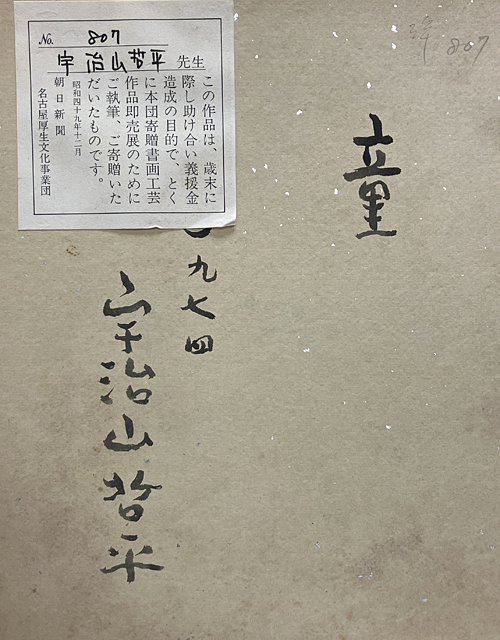 No. 807
宇治山哲平 先生
この作品は、歳末に
際し助け合い義援金
造成の目的で、とく
に本団寄贈書画工芸
作品即売展のために
ご執筆、ご寄贈いた
だいたものです。
昭和四十九年十二月
朝日新聞
名古屋厚生文化事業団
807
童
九七四
宇治山哲平